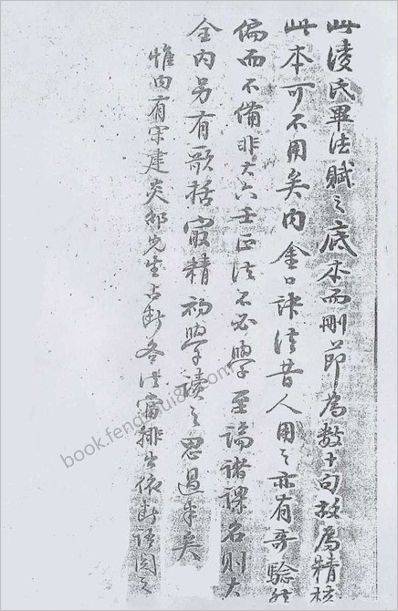 此淩氏畢法賦之底本而刪節為數十句極為精核
此本可不用矣內金口訣法昔人用之亦有奇驗然
偏而不備非大六壬正法不必學至論諸課名則大
全內另有歌括最精初學讀之思過半矣
惟內有宋建炎邵先生占斷各法排出依斷語閱之